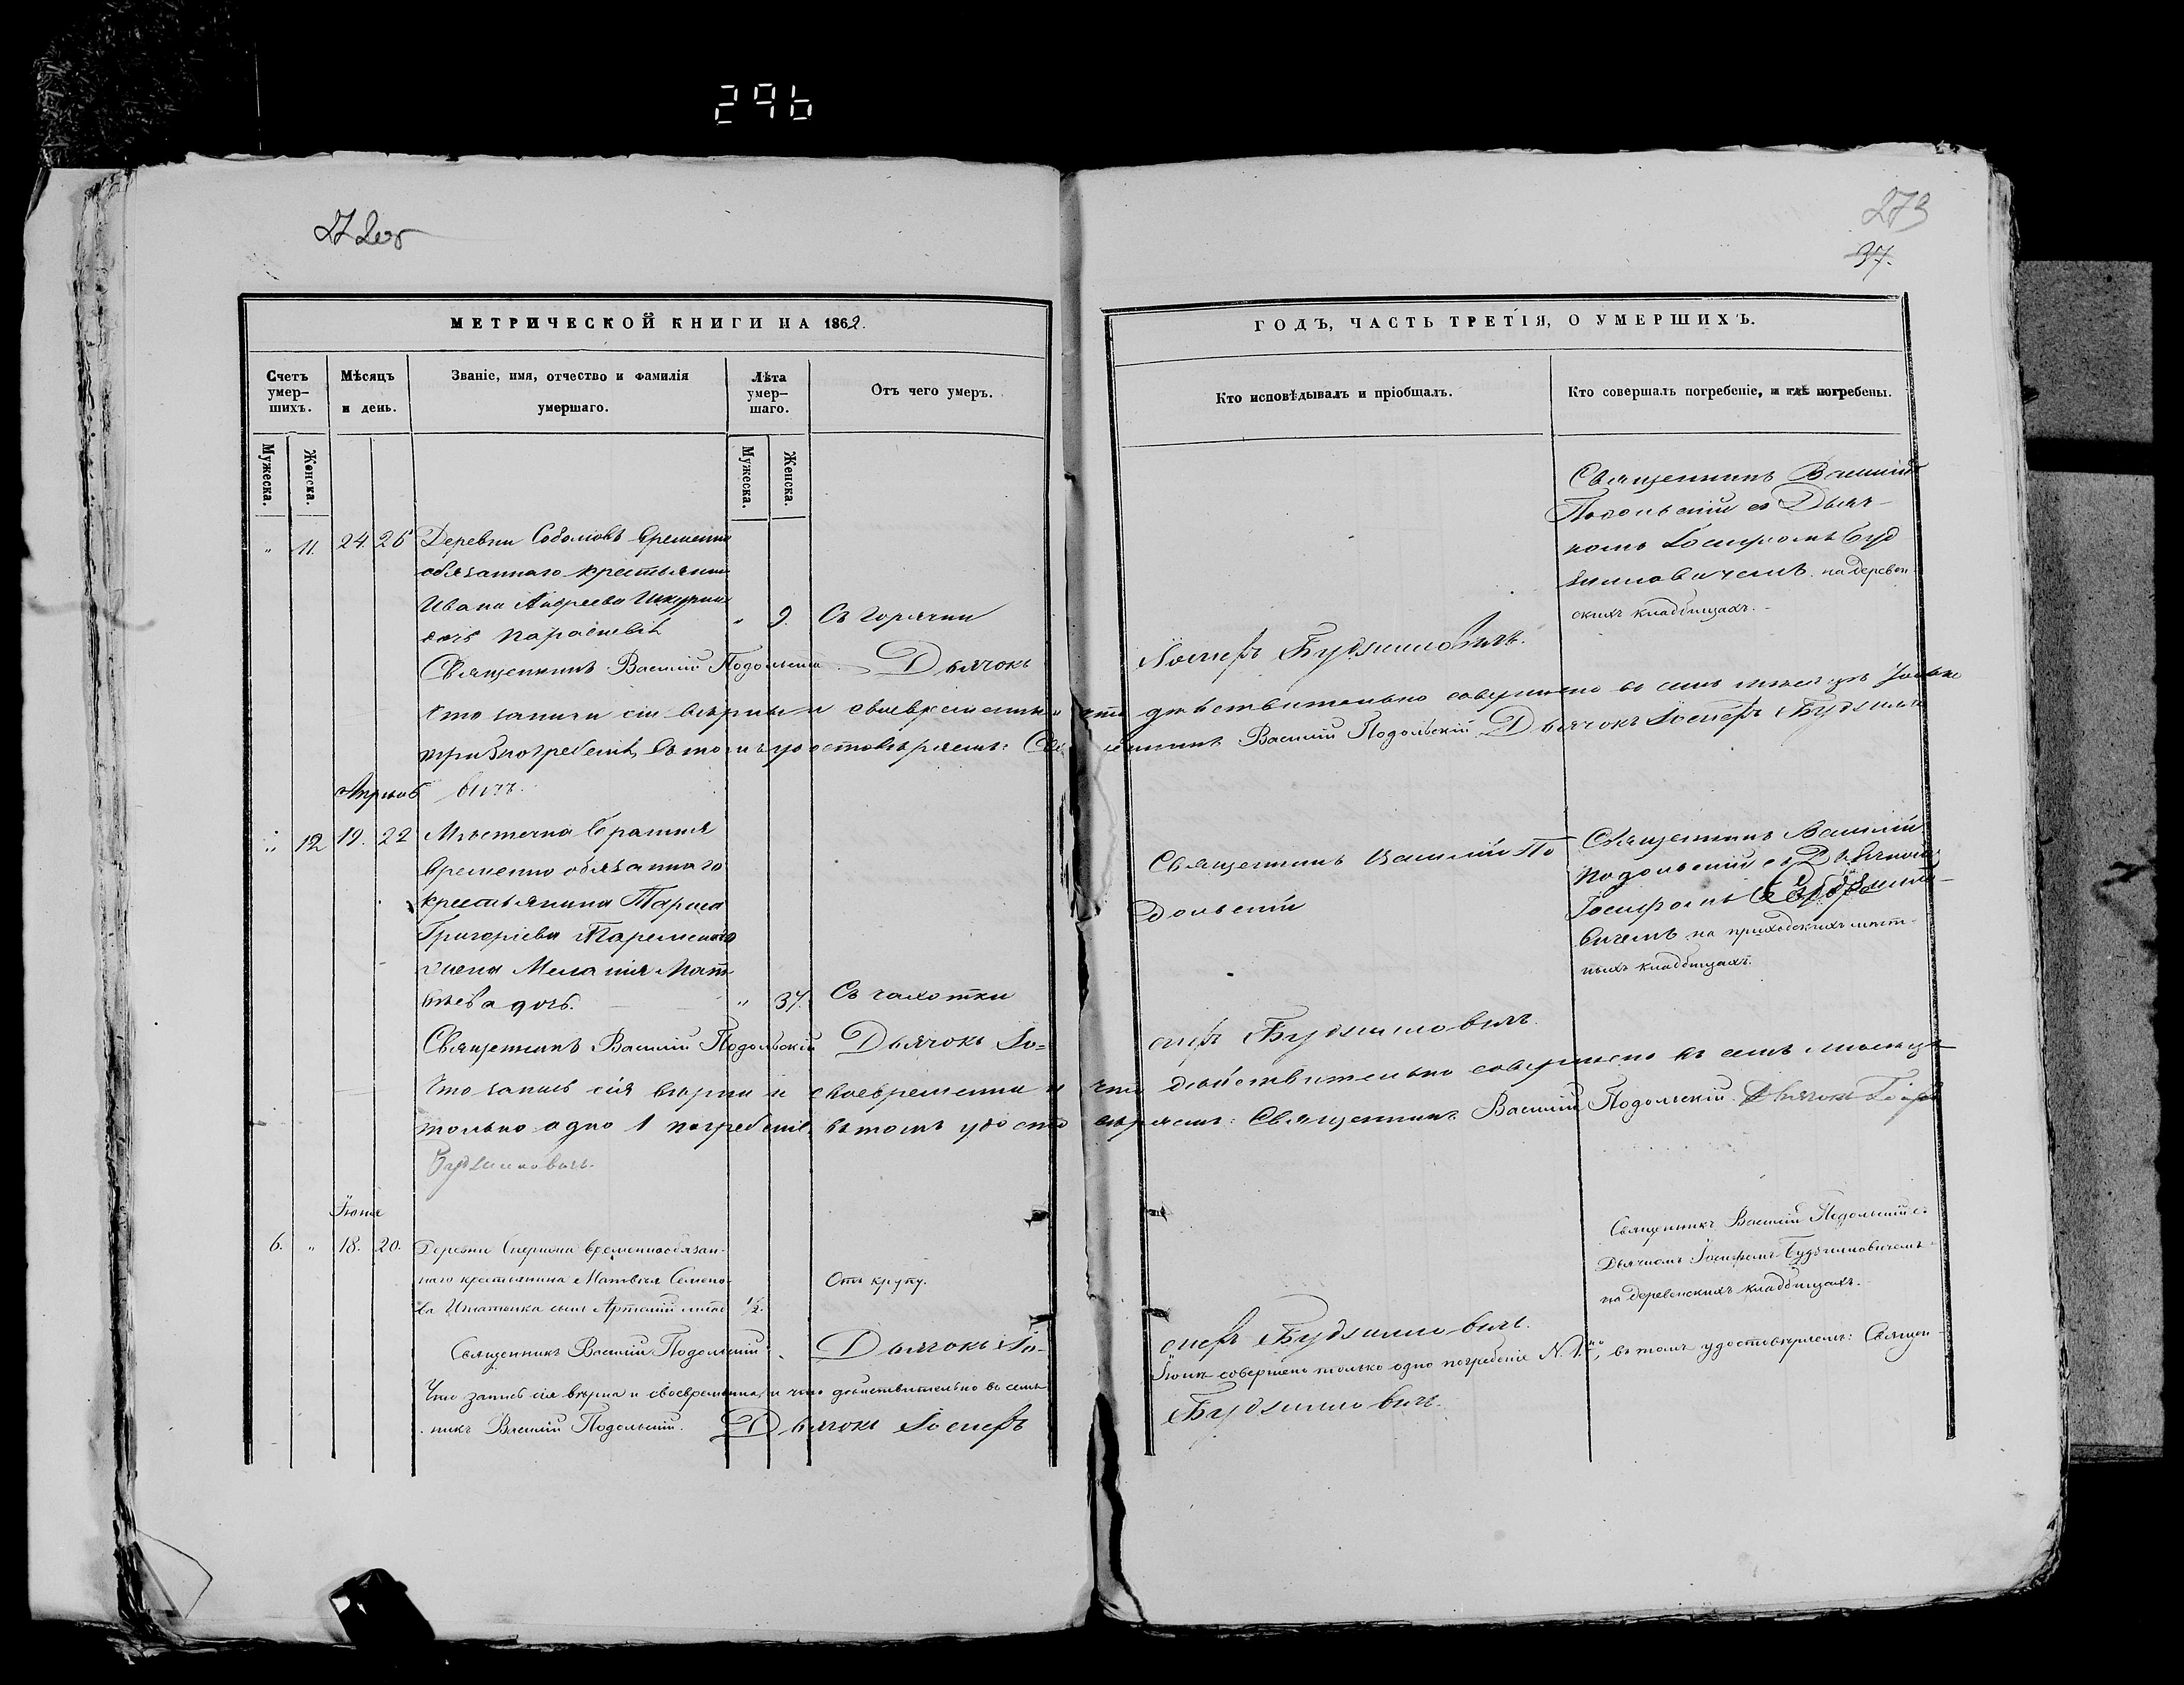 296
272об
273
37.
МЕТРИЧЕСКОЙ КНИГИ НА 1862.
ГОДЪ, ЧАСТЬ ТРЕТІЯ, О УМЕРШИХЪ.
Счетъ умер-
шихъ.
Мѣсяцъ
и день.
Званіе, имя, отчество и фамилія
умершаго.
Лѣта
умер-
шаго.
Отъ чего умеръ.
Кто исповѣдывалъ и пріобщалъ.
Кто совершалъ погребеніе, и гдѣ погребены.
Мужеска.
Женска.
Мужеска.
Женска.
" 11. 24. 26 Деревни временно
обязаннаго крестьянина
Ивана Андреева
дочь Параскева " 9. Съ горячки
Священникъ Василій
Подольскій съ Дьяч-
комъ Іосифомъ Буд
зиловичемъ на деревен
скихъ кладбищахъ.
Священникъ Василій Подольскій. Дьячокъ Іосифъ Будзиловичъ.
Что записи сіи вѣрны и своевременны и что дѣйствительно совершено въ семъ мѣсяцѣ только
три погребенія, въ томъ удостовѣряемъ: Священникъ Василій Подольскій Дьячокъ Іосифъ Будзило
вичъ.
Апрѣль
" 12 19. 22 Мѣстечка
временно обязаннаго
крестьянина Тараса
Григоріева
жена Меланія Мат
вѣева дочь. " 37. Съ чахотки
Священникъ Василій По
дольскій
Священникъ Василій
Подольскій съ Дьячкомъ
Іосифомъ Будзило
вичемъ на приходскихъ мѣст-
ныхъ кладбищахъ.
Священникъ Василій Подольскій Дьячокъ Іо= сифъ Будзиловичъ.
Что запись сія вѣрна и своевременна и что дѣйствительно совершено въ семъ мѣсяцѣ
только одно 1 погребеніе, въ томъ удостовѣряемъ: Священникъ Василій Подольскій. Дьячокъ Іосифъ
Будзиловичъ.
Іюня
6. " 18. 20. Деревни временнообязан-
наго крестьянина Матвѣя Семено-
ва Игнатюка сынъ Артемій 1/2. Отъ крупу.
Священникъ Василій Подольскій съ
Дьячкомъ Іосифомъ Будзиловичемъ
на деревенскихъ кладбищахъ.
Священникъ Василій Подольскій. Дьячокъ Іо- сифъ Будзиловичъ.
Что запись сія вѣрна и своевременна, и что дѣйствительно въ семъ Іюнѣ совершено только одно погребеніе N. 1., въ томъ удостовѣряемъ: Священ-
никъ Василій Подольскій. Дьячокъ Іосифъ Будзиловичъ.